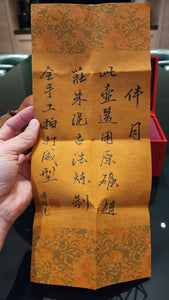 伴月
此壺選用原礦趙
莊朱泥古法煉制
全手工拍打成型